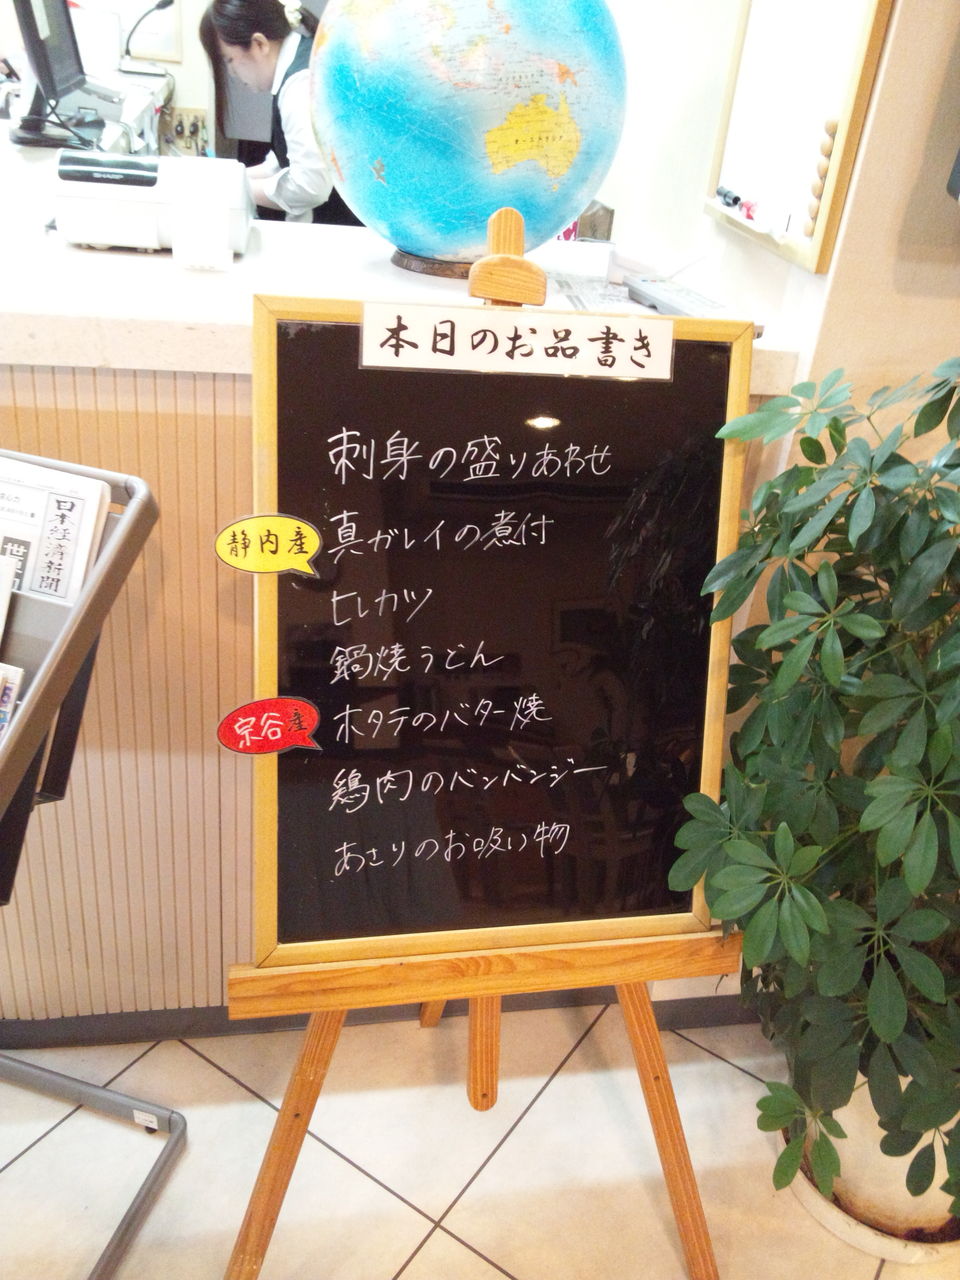 SHARP
オーストラリア
本日のお品書き
刺身の盛りあわせ
静内産
真ガレイの煮付
ヒレカツ
鍋焼うどん
宗谷産
ホタテのバター焼
鶏肉のバンバンジー
あさりのお吸い物
日本経済新聞